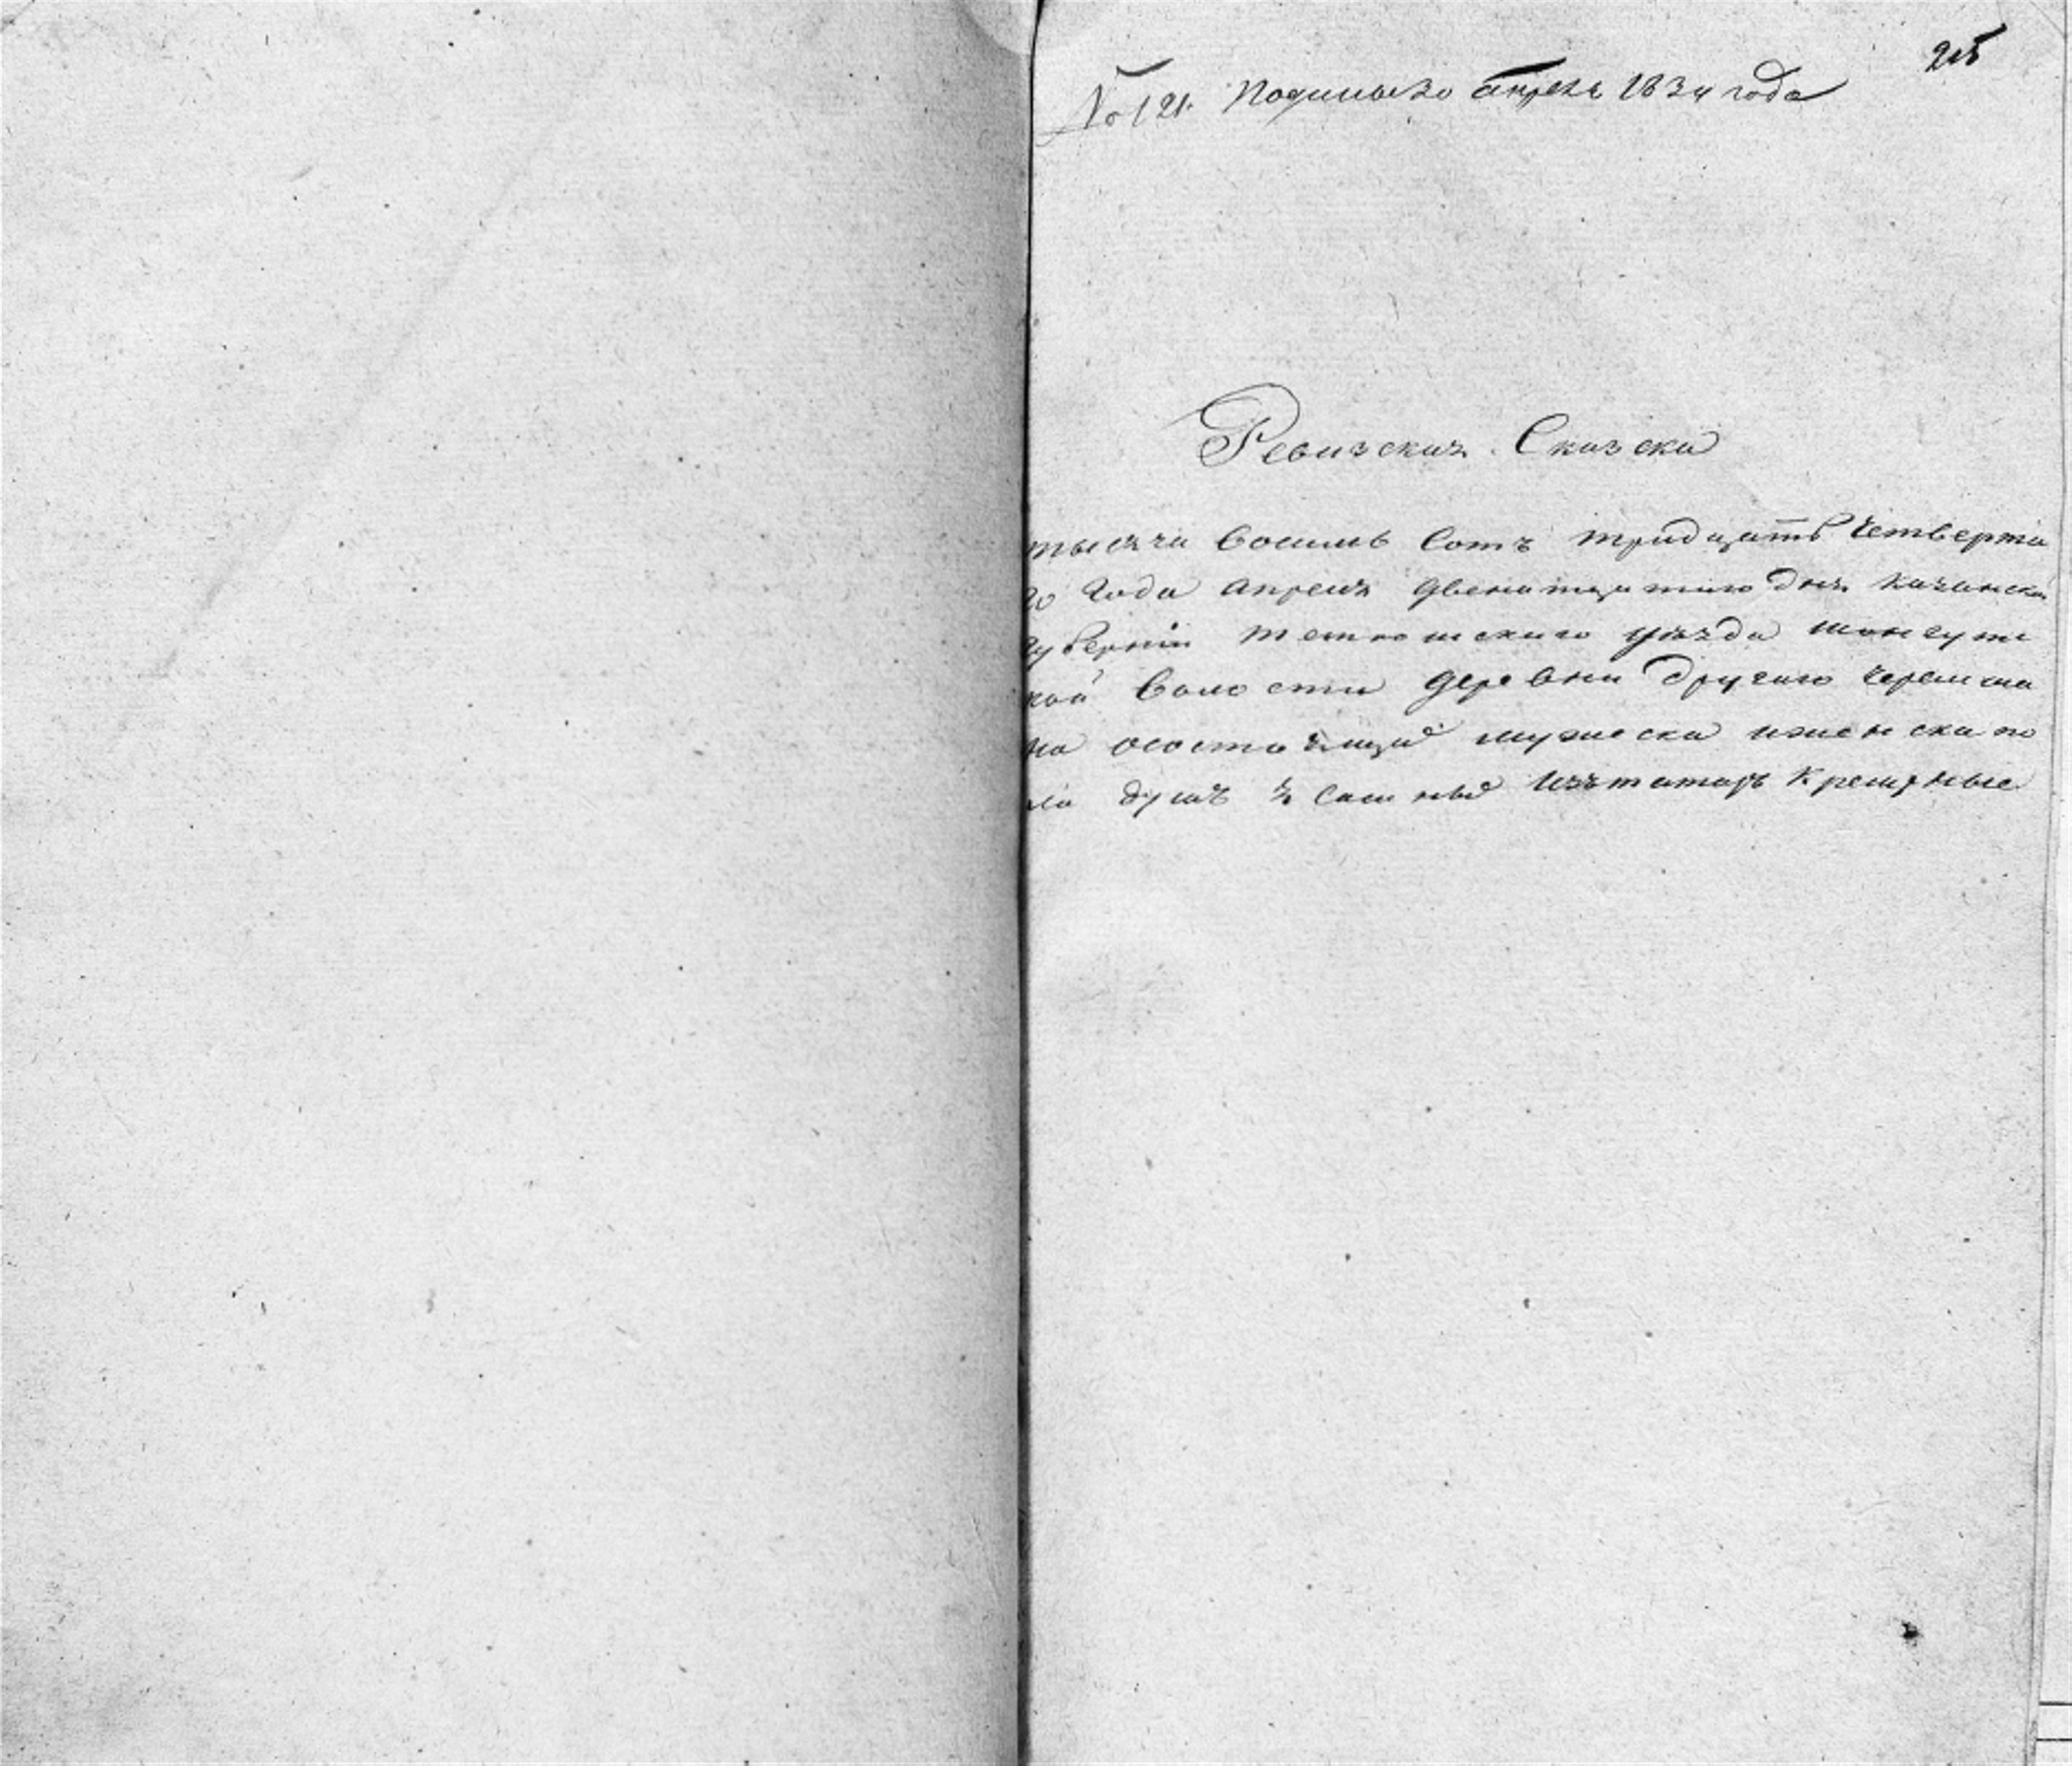 215
№ 121. Подана 20 апреля 1834 года
Ревизская Сказска
тысяча восемь сотъ тридцать четверта
го года апреля двенатцатаго дня казанской
губернии тетюшскаго уѣзда
кой волости деревни другаго черемша
на осостоящие мужеска иженска по
ла душъ изътатаръ крещеные